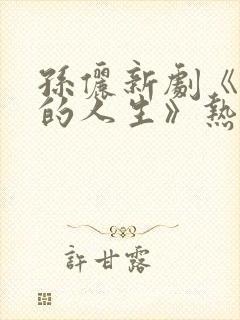 孫儷新劇《
的人生》熱
許甘露